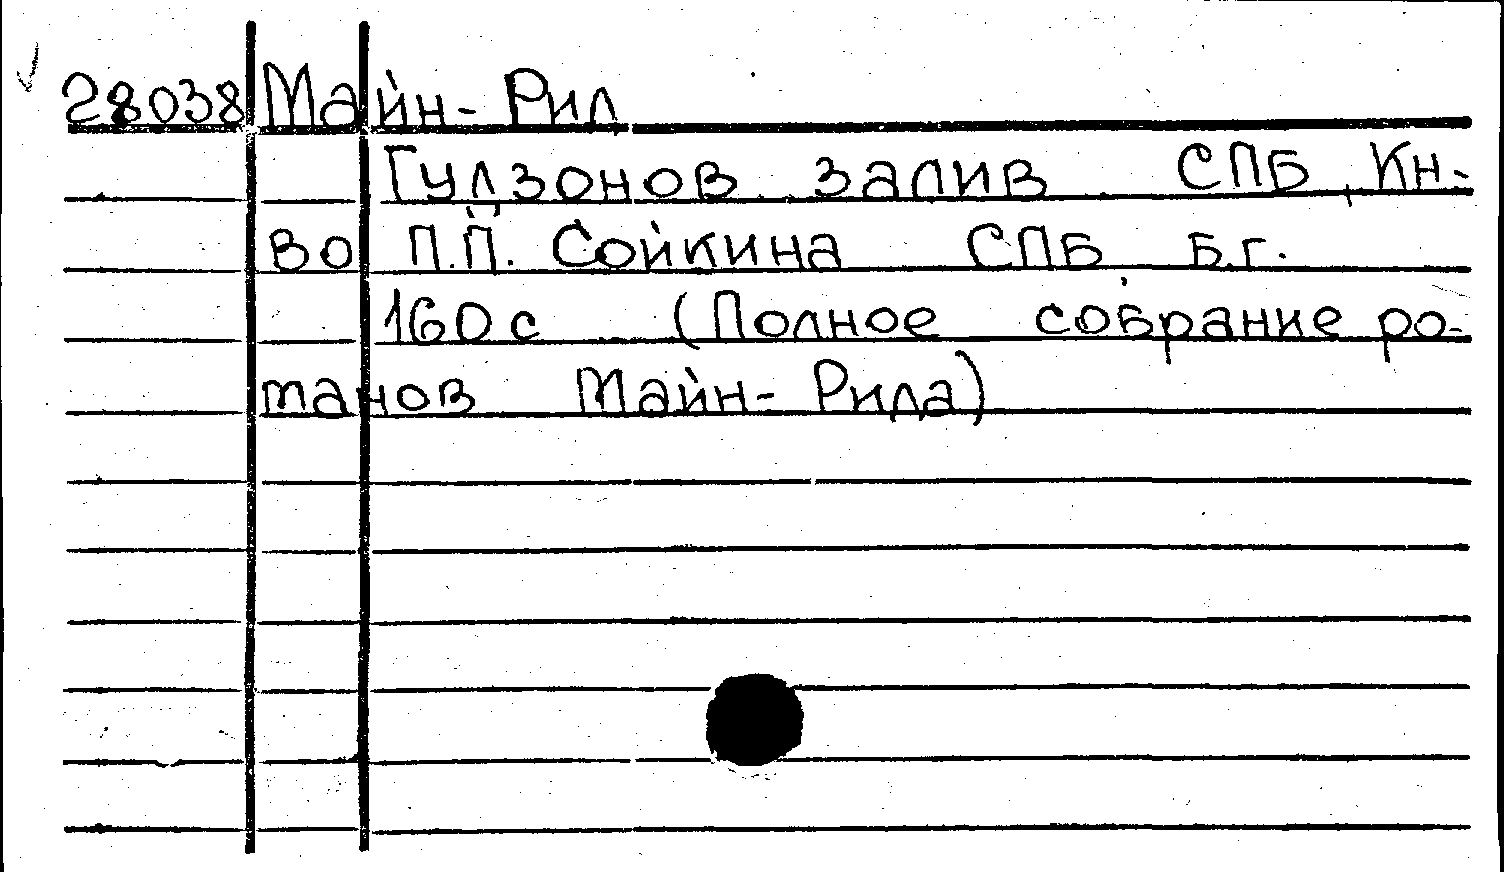 28038 Майн-Рид
Гудзонов залив СПБ, Кн-
во П.П. Сойкина СПБ Б.г.
160 с (Полное собрание ро-
манов Майн-Рида)